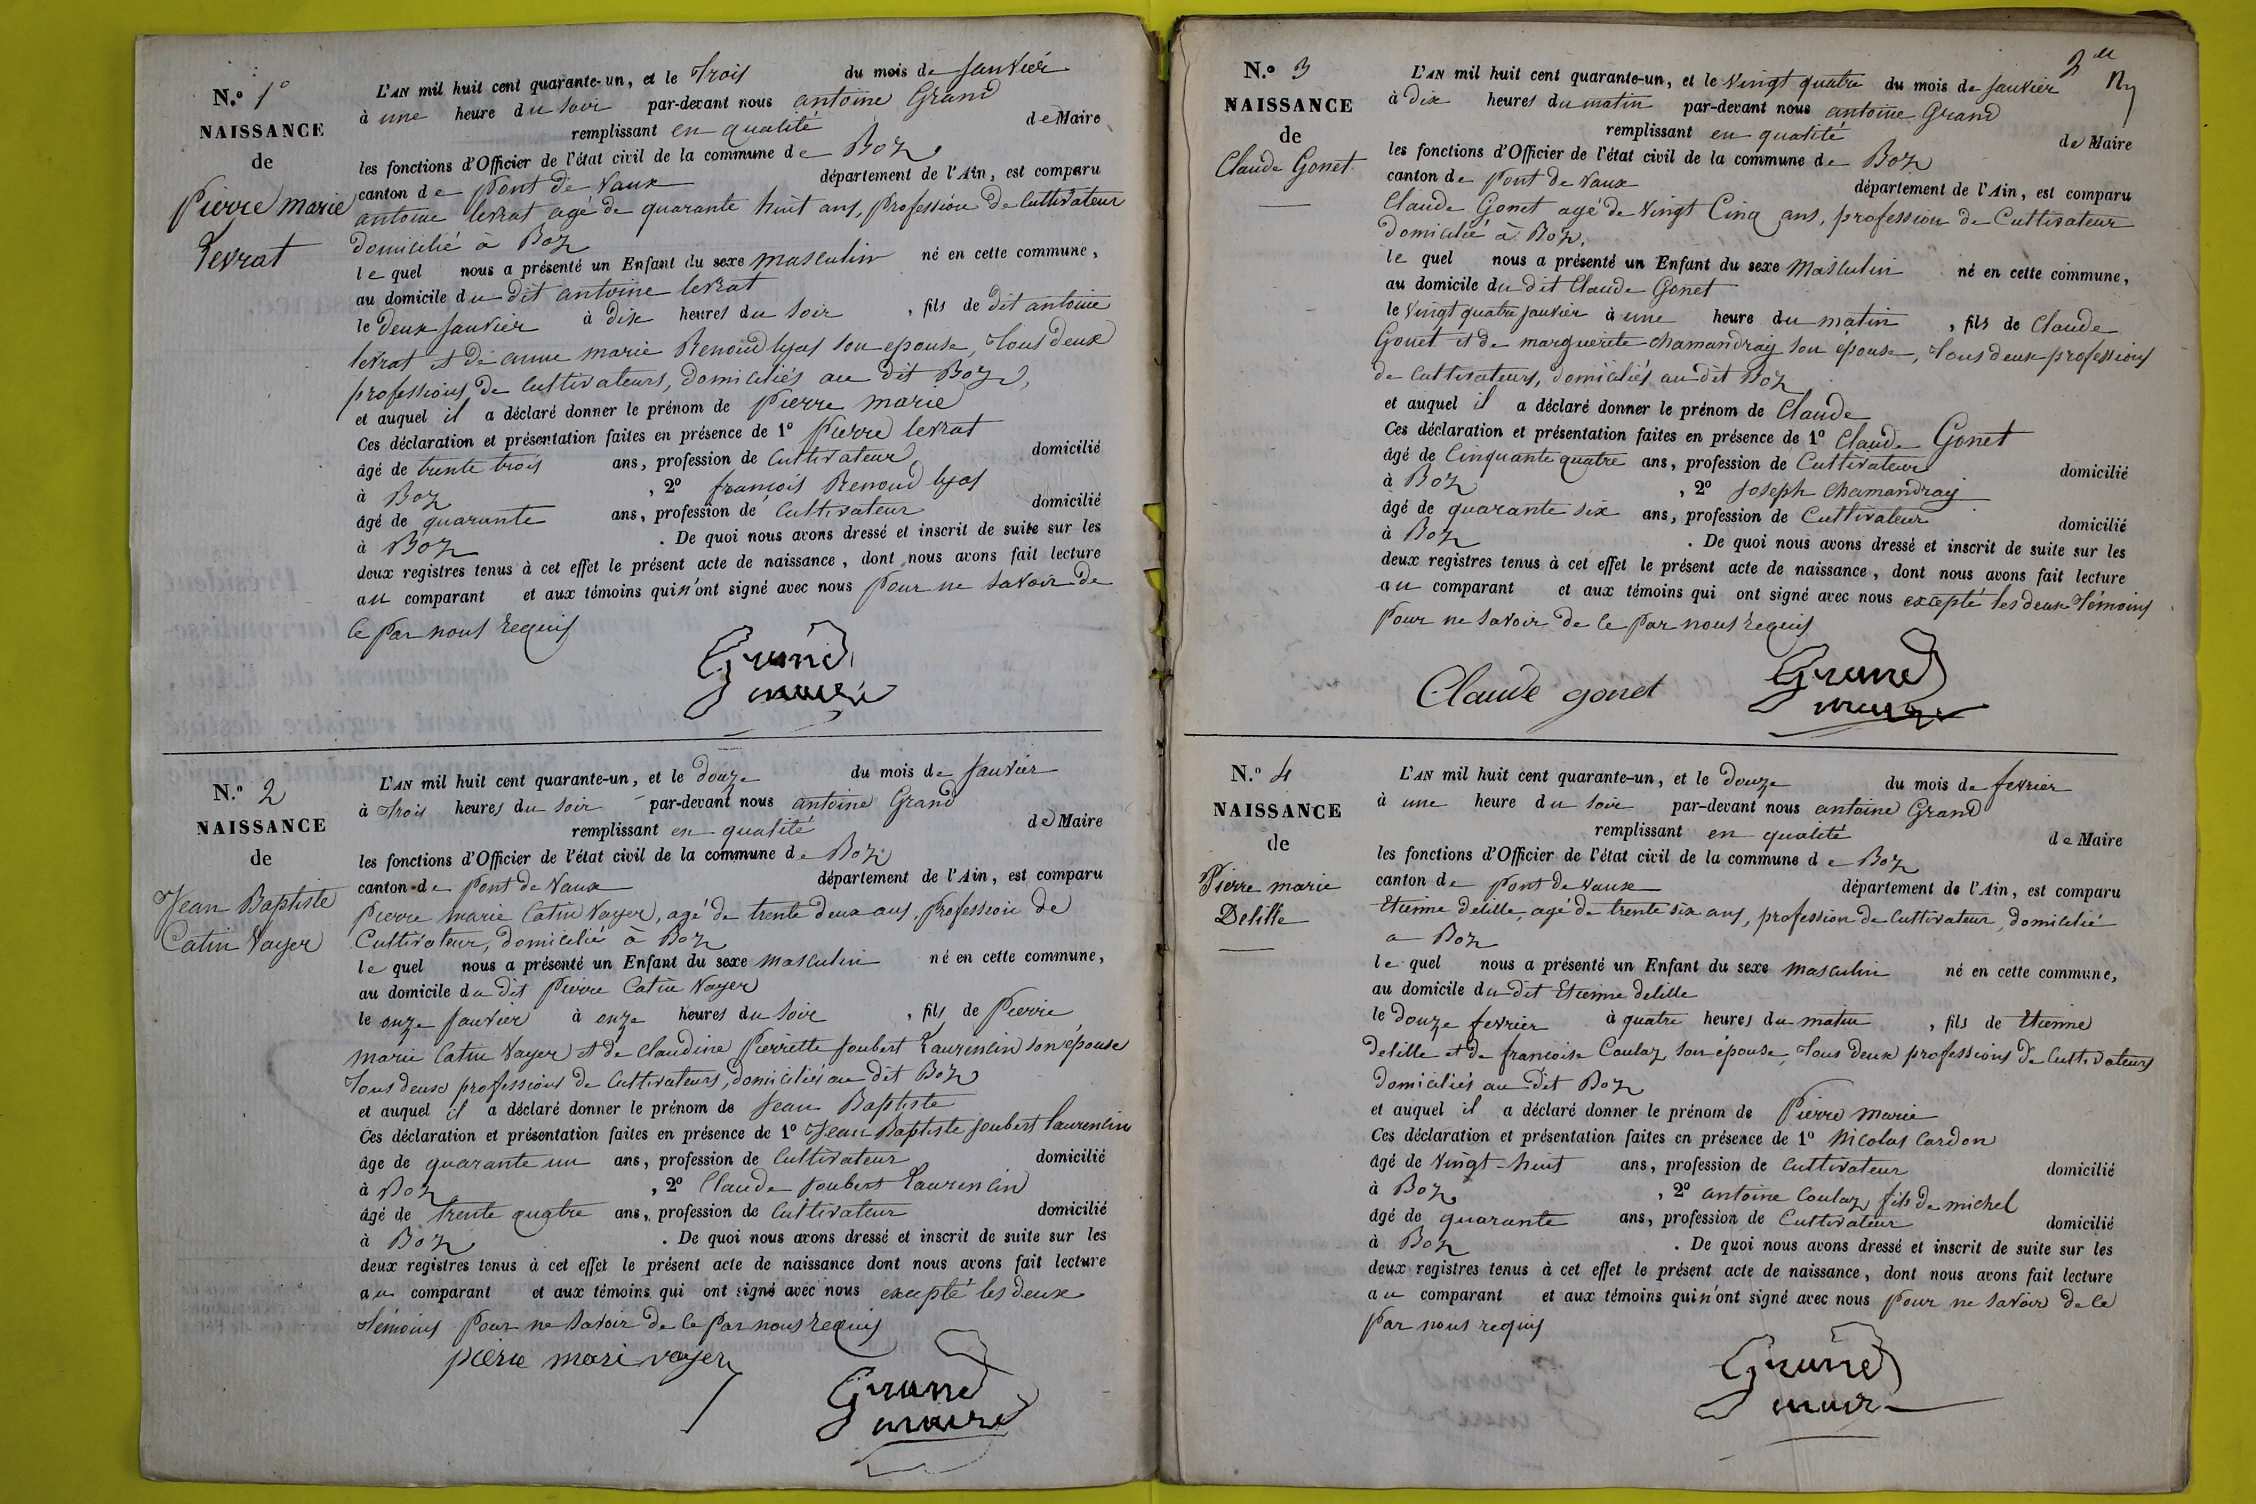 N.o 1o
NAISSANCE
de
Pierre marie
Levrat
L'AN mil huit cent quarante-un, et le trois du mois de janvier
à une heure du soir par-devant nous antoine Grand
remplissant en qualité de Maire
les fonctions d'Officier de l'état civil de la commune de Boz
canton de pont de vaux département de l'Ain, est comparu
antoine levrat agé de quarante huit ans, profession de Cultivateur
domicilié à Boz
lequel nous a présenté un Enfant du sexe masculin né en cette commune,
au domicile du dit antoine levrat
le deux janvier à dix heures du soir, fils de dit antoine
levrat et de anne marie Renoud lyas son epouse, tous deux
professions de cultivateurs, domiciliés au dit Boz,
et auquel il a déclaré donner le prénom de pierre marie
Ces déclaration et présentation faites en présence de 1o pierre levrat
âgé de trente trois ans, profession de Cultivateur domicilié
à Boz, 2o francois Renoud lyas
âgé de quarante ans, profession de Cultivateur domicilié
à Boz. De quoi nous avons dressé et inscrit de suite sur les
deux registres tenus à cet effet le présent acte de naissance, dont nous avons fait lecture
au comparant et aux témoins qui n'ont signé avec nous pour ne savoir de
ce par nous requis
Grand
maire
N.o 2
NAISSANCE
de
Jean Baptiste
Catin Vayer
L'AN mil huit cent quarante-un, et le douze du mois de janvier
à trois heures du soir par-devant nous antoine Grand
remplissant en qualité de Maire
les fonctions d'Officier de l'état civil de la commune de Boz
canton de pont de Vaux département de l'Ain, est comparu
pierre marie Catin Vayer, agé de trente deux ans, profession de
Cultivateur, domicilié à Boz
lequel nous a présenté un Enfant du sexe masculin né en cette commune,
au domicile du dit pierre Catin Vayer
le onze janvier à onze heures du soir, fils de Pierre
marie Catin Vayer et de claudine Pierrette joubert Laurencin son épouse
tous deux professions de Cultivateurs, domiciliés au dit Boz
et auquel il a déclaré donner le prénom de Jean Baptiste
Ces déclaration et présentation faites en présence de 1o Jean Baptiste joubert laurencin
âge de quarante un ans, profession de Cultivateur domicilié
à Boz, 2o Claude joubert Laurencin
âgé de trente quatre ans, profession de Cultivateur domicilié
à Boz. De quoi nous avons dressé et inscrit de suite sur les
deux registres tenus à cet effet le présent acte de naissance dont nous avons fait lecture
au comparant et aux témoins qui ont signé avec nous excepté les deux
témoins pour ne savoir de ce par nous requis
piere mari vayer
Grand
maire
2e
N.o 3
NAISSANCE
de
Claude Gonet
L'AN mil huit cent quarante-un, et le vingt quatre du mois de janvier
à dix heures du matin par-devant nous antoine Grand
remplissant en qualité de Maire
les fonctions d'Officier de l'état civil de la commune de Boz
canton de pont de vaux département de l'Ain, est comparu
Claude Gonet agé de vingt Cinq ans, profession de Cultivateur
domicilié à Boz,
lequel nous a présenté un Enfant du sexe Masculin né en cette commune,
au domicile du dit Claude Gonet
le vingt quatre janvier à une heure du matin, fils de Claude
Gonet et de marguerite chamandray son épouse, tous deux professions
de cultivateurs, domiciliés au dit Boz
et auquel il a déclaré donner le prénom de Claude
Ces déclaration et présentation faites en présence de 1o Claude Gonet
âgé de Cinquante quatre ans, profession de Cultivateur domicilié
à Boz, 2o Joseph Chamandray
âgé de quarante six ans, profession de Cultivateur domicilié
à Boz. De quoi nous avons dressé et inscrit de suite sur les
deux registres tenus à cet effet le présent acte de naissance, dont nous avons fait lecture
au comparant et aux témoins qui ont signé avec nous excepté les deux témoins
pour ne savoir de ce par nous requis
Claude gonet
Grand
maire
N.o 4
NAISSANCE
de
Pierre marie
Delille
L'AN mil huit cent quarante-un, et le douze du mois de fevrier
à une heure du soir par-devant nous antoine Grand
remplissant en qualité de Maire
les fonctions d'Officier de l'état civil de la commune de Boz
canton de pont de vaux département de l'Ain, est comparu
Etienne delille, agé de trente six ans, profession de Cultivateur, domicilié
a Boz
lequel nous a présenté un Enfant du sexe masculin né en cette commune,
au domicile du dit Etienne delille
le douze fevrier à quatre heures du matin, fils de Etienne
delille et de francoise Coulaz son épouse, tous deux professions de Cultivateurs
domiciliés au dit Boz
et auquel il a déclaré donner le prénom de Pierre marie
Ces déclaration et présentation faites en présence de 1o Nicolas Cardon
âgé de vingt-huit ans, profession de Cultivateur domicilié
à Boz, 2o antoine Coulaz fils de michel
âgé de quarante ans, profession de Cultivateur domicilié
à Boz. De quoi nous avons dressé et inscrit de suite sur les
deux registres tenus à cet effet le présent acte de naissance, dont nous avons fait lecture
au comparant et aux témoins qui n'ont signé avec nous pour ne savoir de ce
par nous requis
Grand
maire